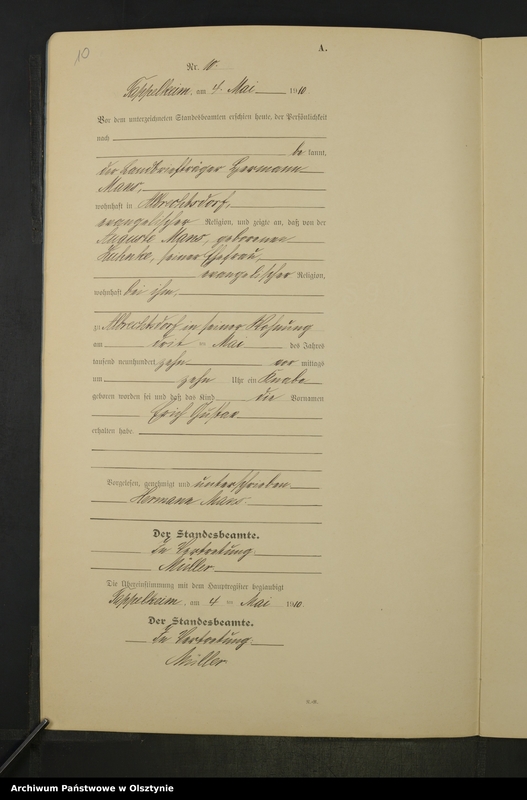 10
A.
Nr. 10.
Tappelkeim, am 4. Mai 1910.
Vor dem unterzeichneten Standesbeamten erschien heute, der Persönlichkeit
nach
be kannt,
der Landbriefträger Hermann
Mans,
wohnhaft in Albrechtsdorf,
evangelischer Religion, und zeigte an, daß von der
Auguste Mans, geborenen
Hahnke, seiner Ehefrau,
evangelischer Religion,
wohnhaft bei ihm,
zu Albrechtsdorf in seiner Wohnung
am drit ten Mai des Jahres
tausend neunhundert zehn vor mittags
um zehn Uhr ein Knabe
geboren worden sei und daß das Kind die Vornamen
Erich Gustav
erhalten habe.
Vorgelesen, genehmigt und unterschrieben
Hermann Mans.
Der Standesbeamte.
In Vertretung
Müller.
Die Übereinstimmung mit dem Hauptregister beglaubigt
Tappelkeim, am 4 ten Mai 1910.
Der Standesbeamte.
In Vertretung
Müller
Archiwum Państwowe w Olsztynie